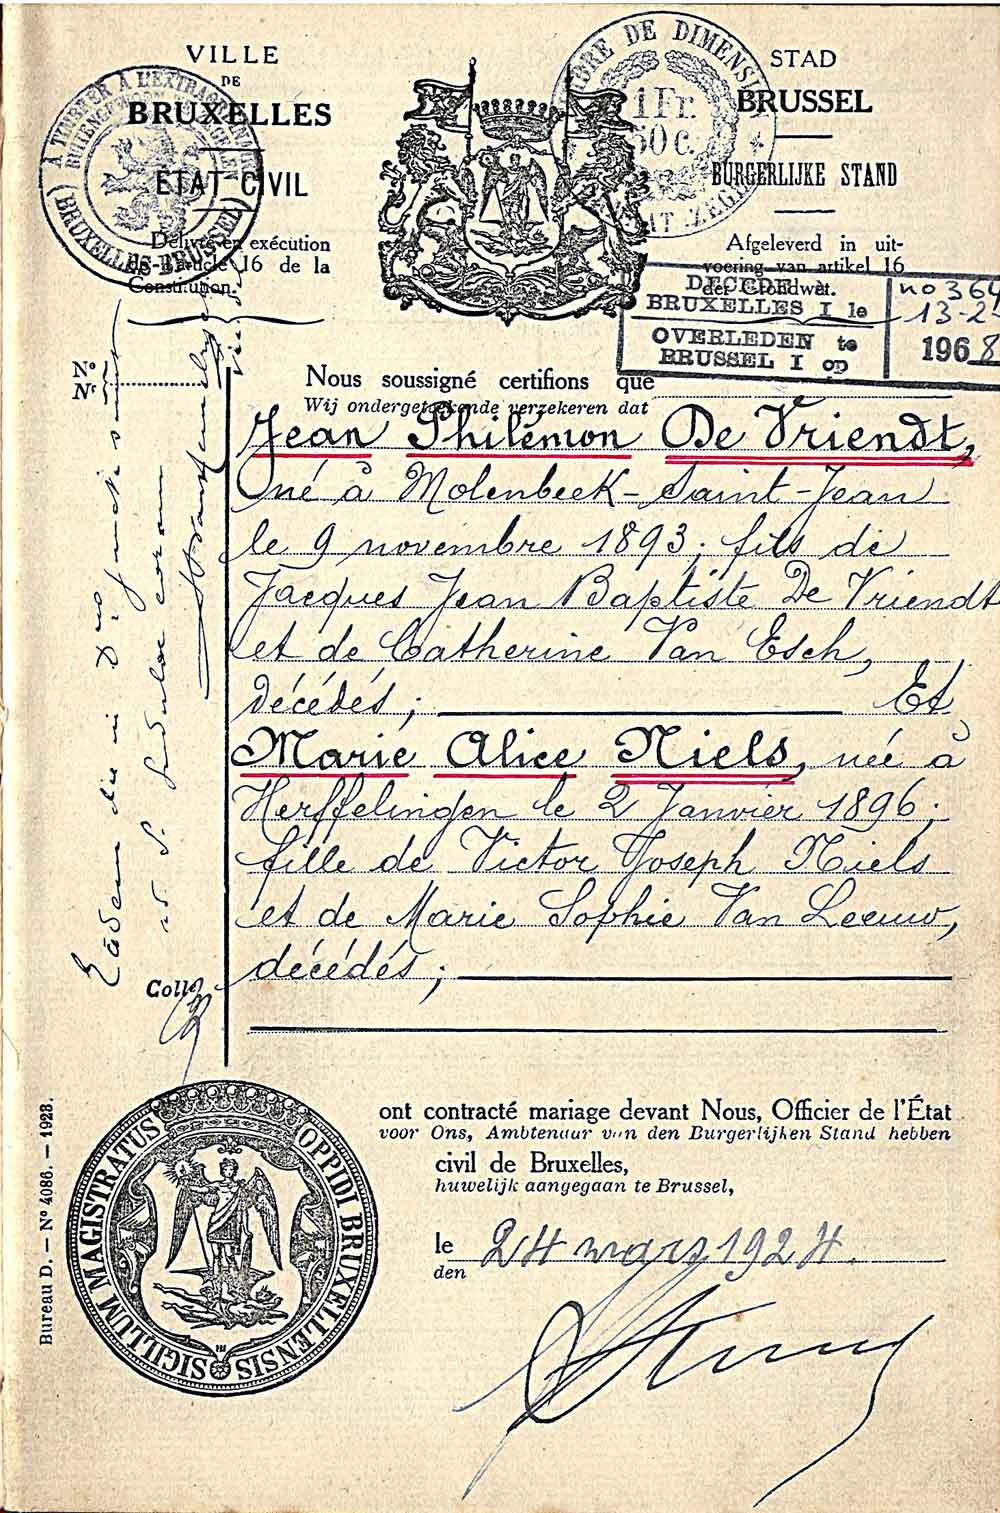 VILLE
DE
BRUXELLES
ÉTAT CIVIL
Délivré en exécution
de l'article 16 de la
Constitution.
À TIMBRER À L'EXTRAORDINAIRE
BRUXELLES-BRUSSEL
TIMBRE DE DIMENSION
1 Fr.
50 c.
STAD
BRUSSEL
BURGERLIJKE STAND
Afgeleverd in uit-
voering van artikel 16
der Grondwet.
DECEDE à
BRUXELLES I le
OVERLEDEN te
BRUSSEL I op
no 364
13-2-
1968
No
Nr
Nous soussigné certifions que
Wij ondergeteekende verzekeren dat
Jean Philémon De Vriendt,
né à Molenbeek-Saint-Jean
le 9 novembre 1893; fils de
Jacques Jean Baptiste De Vriendt
et de Catherine Van Esch,
décédés; Et
Marie Alice Niels, née à
Herffelingen le 2 Janvier 1896;
fille de Victor Joseph Niels
et de Marie Sophie Van Leeuw,
décédés;
Eadem die in Dno juncti sunt
coram
Coll
ont contracté mariage devant Nous, Officier de l'État
voor Ons, Ambtenaar van den Burgerlijken Stand hebben
civil de Bruxelles,
huwelijk aangegaan te Brussel,
le 24 mars 1924.
den
SIGILLUM MAGISTRATUS OPPIDI BRUXELLENSIS
Bureau D. — No 4086. — 1923.